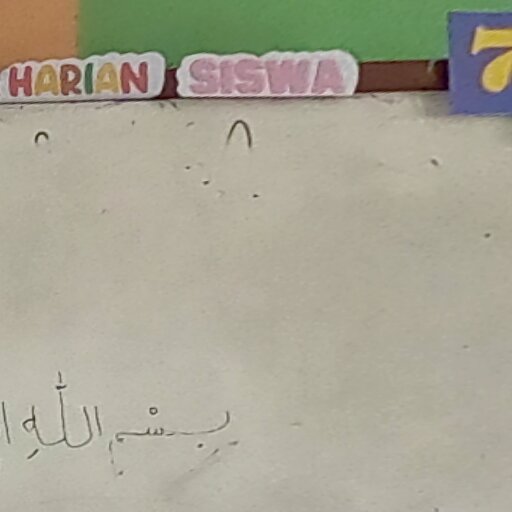 HARIAN SISWA
7
بِسْمِ اللّٰهِ ا